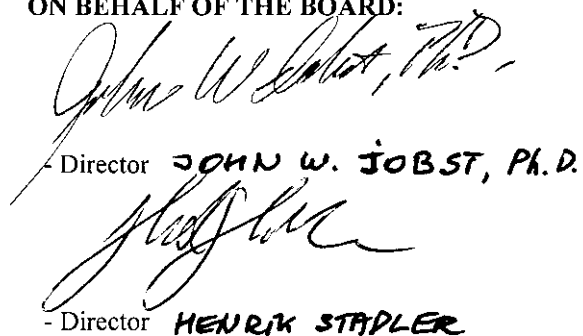 ON BEHALF OF THE BOARD:
John W Jobst, Ph.D.
- Director JOHN W. JOBST, Ph.D.
- Director HENRIK STADLER